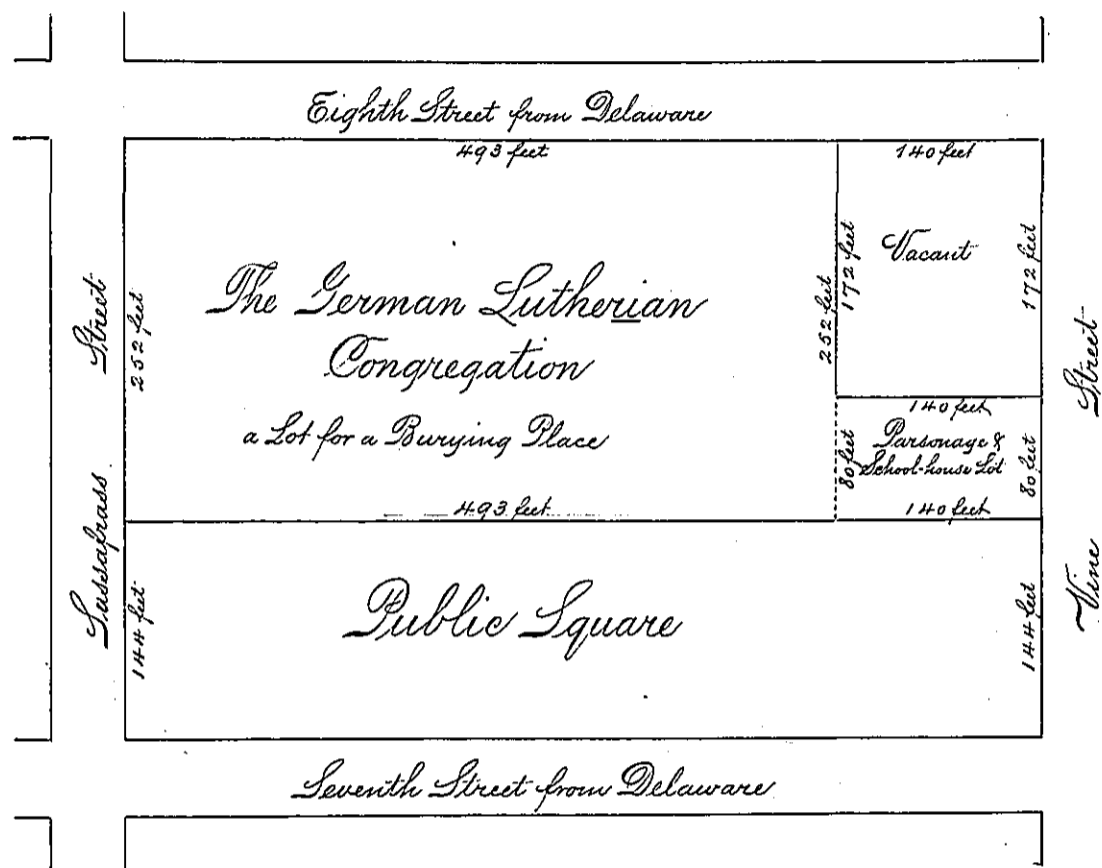 Eighth Street from Delaware
493 feet
140 feet
Sassafrass Street
252 feet
The German Lutherian
Congregation
a Lot for a Burying Place
493 feet
252 feet
172 feet
Vacant
172 feet
140 feet
80 feet
Parsonage &
School-house Lot
80 feet
140 feet
Vine Street
144 feet
Public Square
144 feet
Seventh Street from Delaware